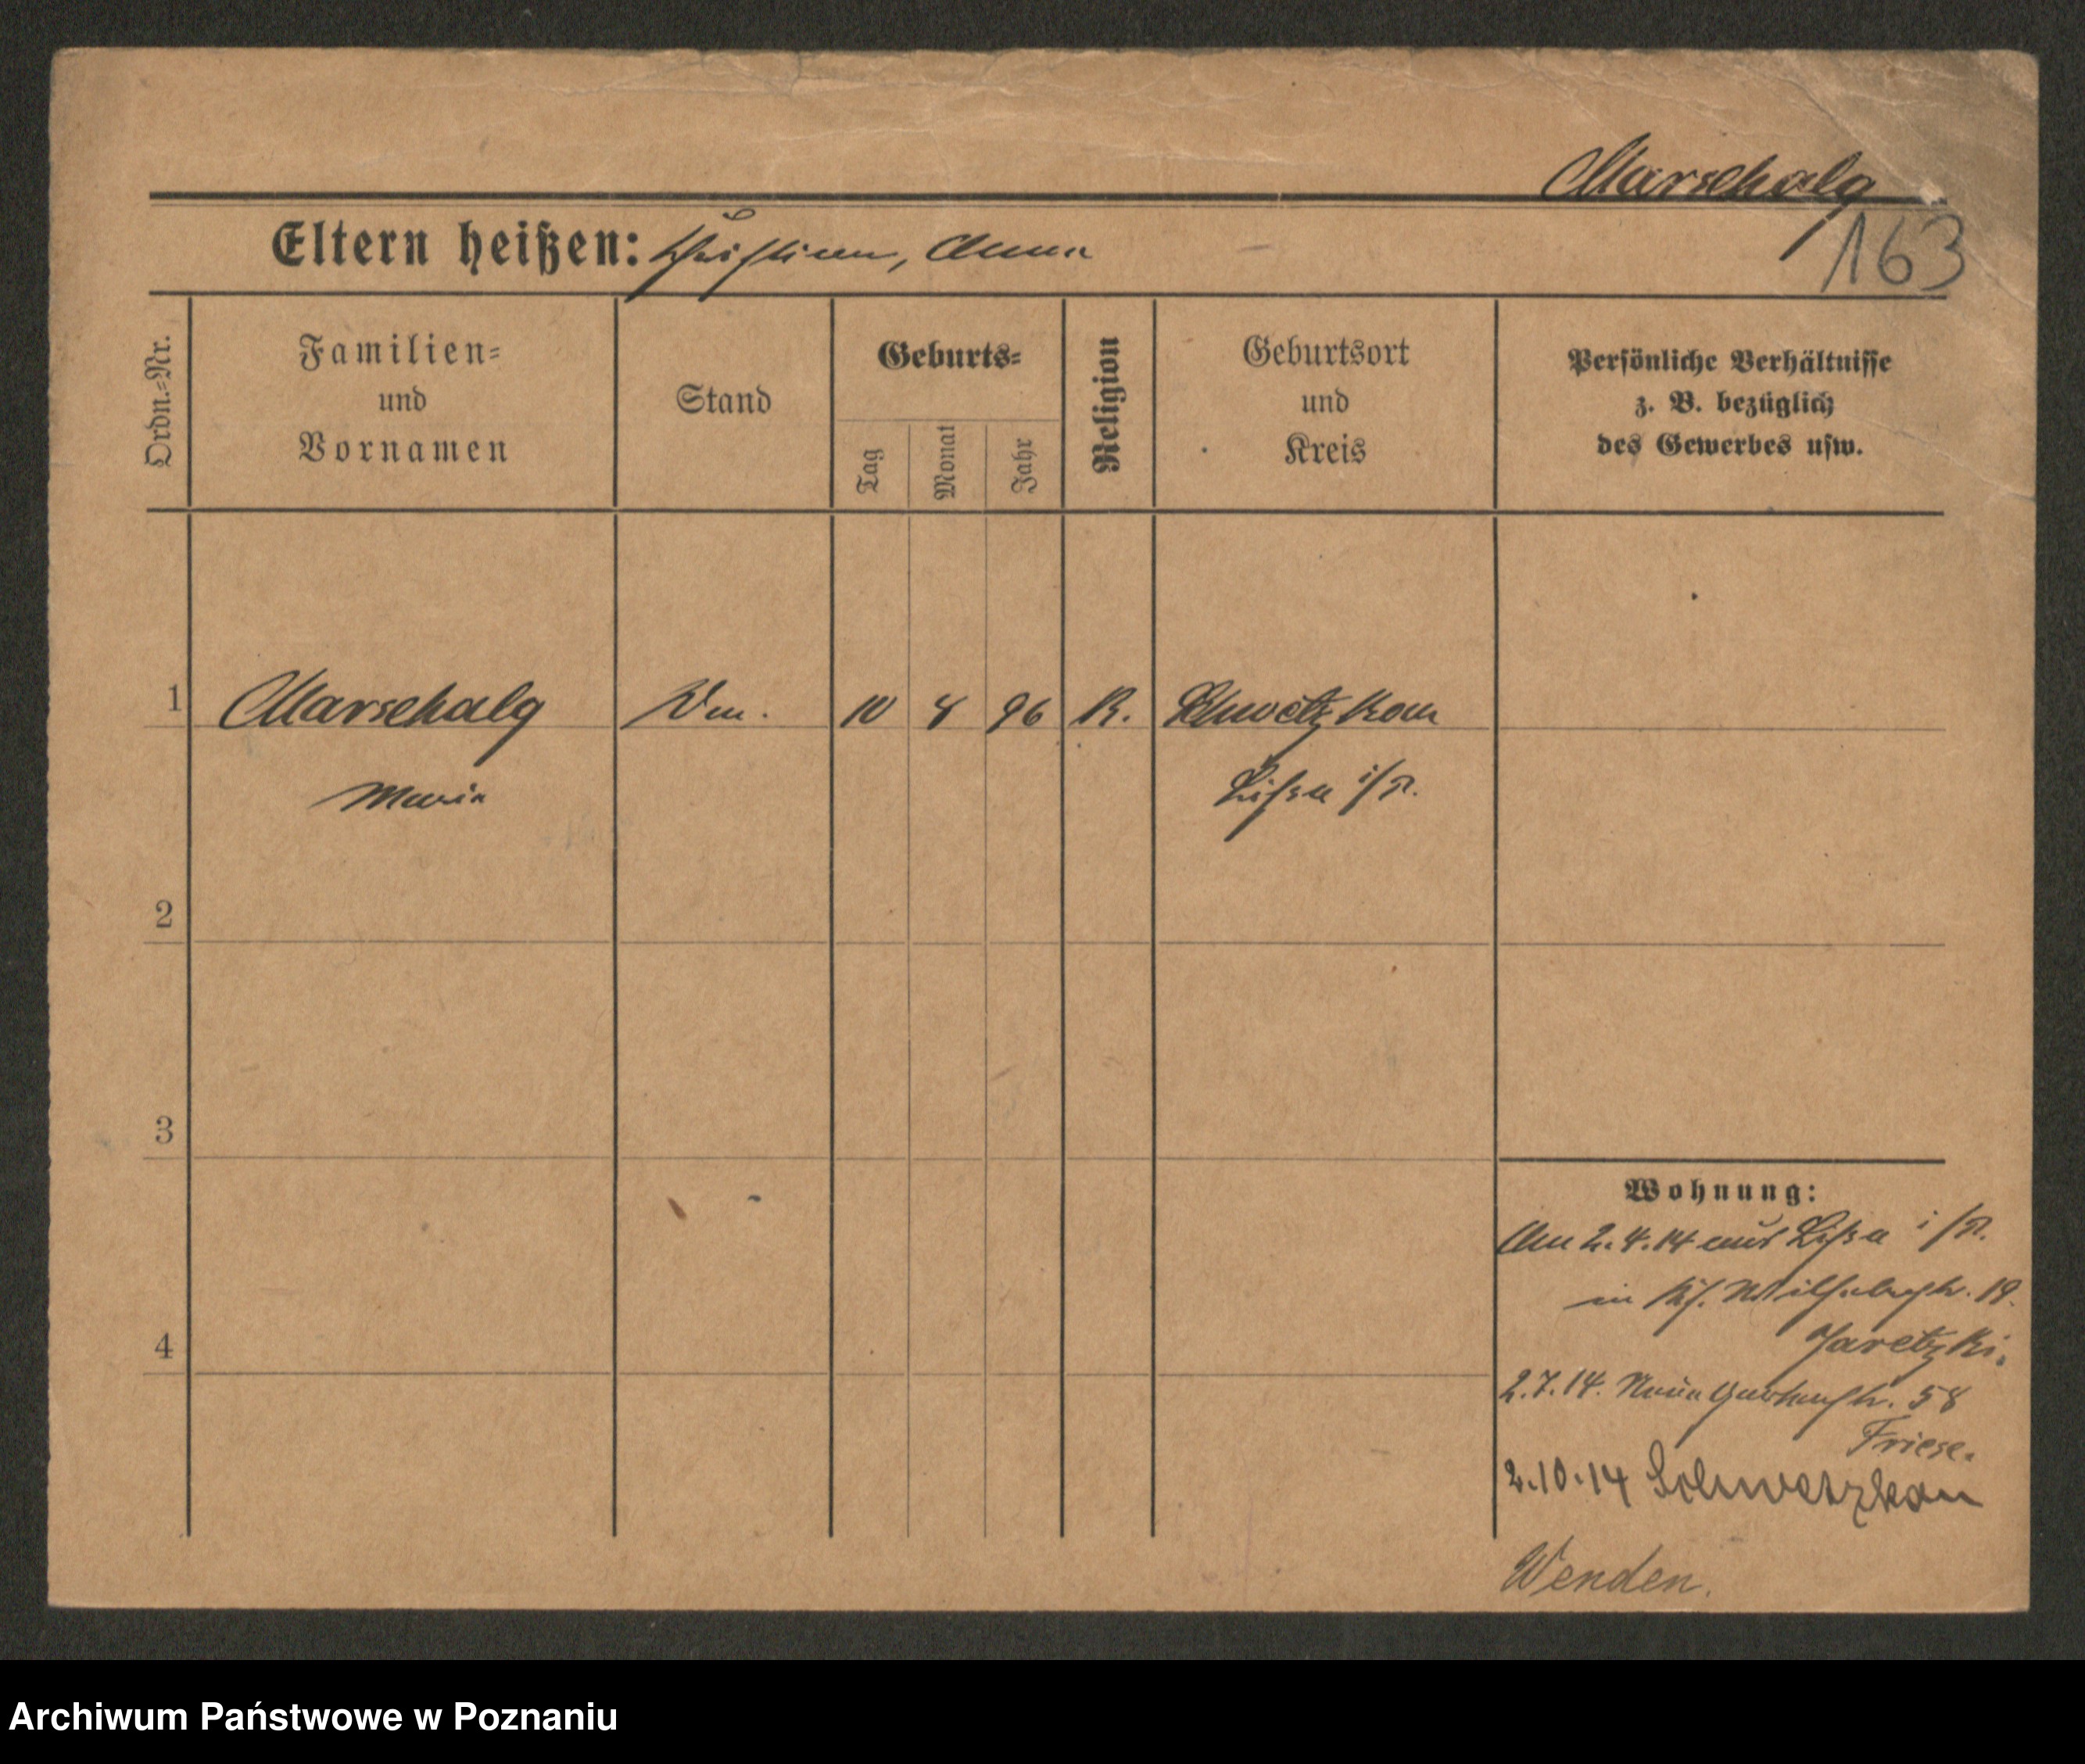 Marschalg
163
Eltern heißen: Christian, Anna
Ordn.-Nr.
Familien-
und
Vornamen
Stand
Geburts-
Tag
Monat
Jahr
Religion
Geburtsort
und
Kreis
Persönliche Verhältnisse
z. B. bezüglich
des Gewerbes usw.
1 Marschalg 10 8 96 K. Schwetzkau
Maria Lissa i/P.
2
3
4
Wohnung:
Am 2.4.14 aus Lissa i/P.
in 19.
Jaretzki.
2.7.14. Neue Gartenstr. 58
Friese.
2.10.14 Schwetzkau
Wenden.
Archiwum Państwowe w Poznaniu